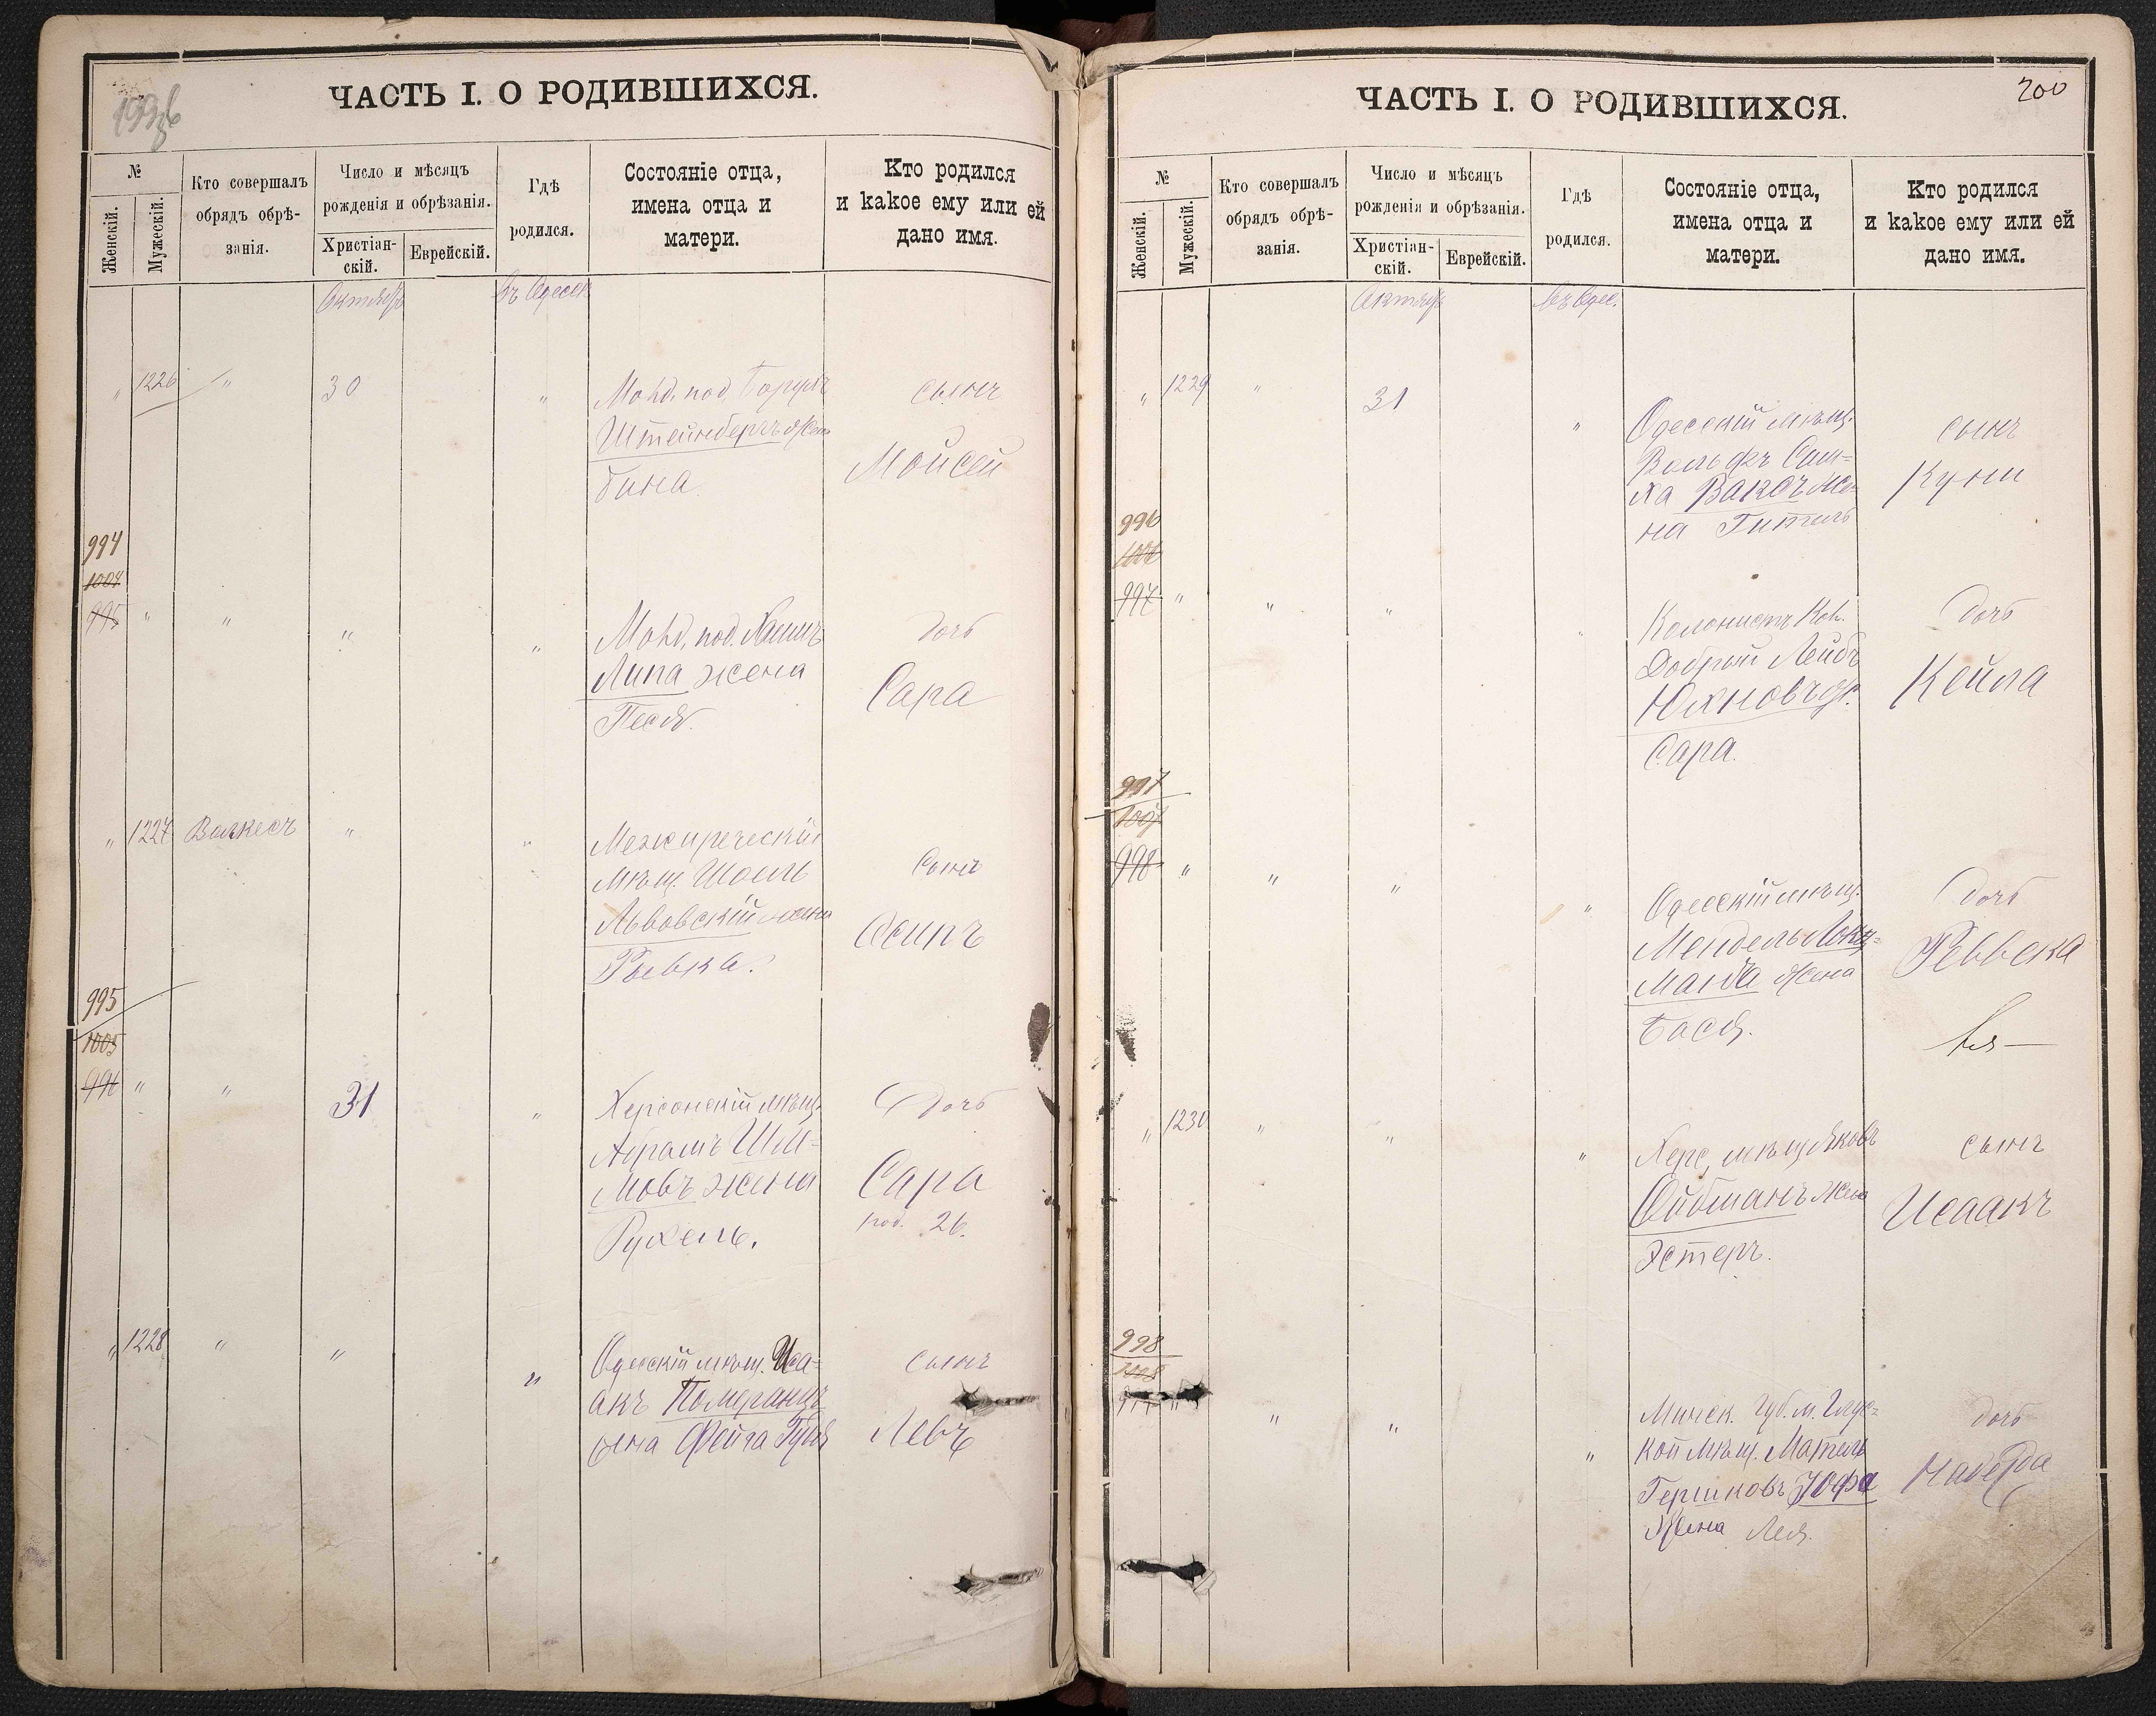 ЧАСТЬ I. О РОДИВШИХСЯ.
№
Женскій.
Мужескій.
Кто совершалъ
обрядъ обрѣ-
занія.
Число и мѣсяцъ
рожденія и обрѣзанія.
Христіан-
скій.
Еврейскій.
Гдѣ
родился.
Состояніе отца,
имена отца и
матери.
Кто родился
и какое ему или ей
дано имя.
Октябрь
въ Одессѣ
" 1226 " 30 "
Молд. под. Борухъ
Штейнбергъ жена
бина
сынъ
Моисей
994
1004
995 " " " "
Молд. под. Хаимъ
Липа жена
Песя.
дочь
Сара
" 1227 Валкесъ " "
Межиреческій
мѣщ. Шоель
Львовскій жена
Рывка.
Сынъ
Осипъ
995
1005
996 " " 31 "
Херсонскій мѣщ.
Абрамъ Шли-
мовъ жена
Рухель.
Дочь
Сара
род. 26.
" 1228 " " "
Одесскій мѣщ. Иса-
акъ Померанцъ
жена Фейга
сынъ
Левъ
ЧАСТЬ I. О РОДИВШИХСЯ.
200
№
Женскій.
Мужескій.
Кто совершалъ
обрядъ обрѣ-
занія.
Число и мѣсяцъ
рожденія и обрѣзанія.
Христіан-
скій.
Еврейскій.
Гдѣ
родился.
Состояніе отца,
имена отца и
матери.
Кто родился
и какое ему или ей
дано имя.
Октябрь
въ Одес.
" 1229 " 31 "
Одесскій мѣщ.
Вольфъ Сим-
ха Ваксъ же-
на Гитель
сынъ
Куни
996
1006
997 " " " "
Колонистъ Кол.
Добрый Лейбъ
Юхновъ ж.
Сара.
Дочь
Кейла
997
1007
998 " " " "
Одесскій мѣщ.
Мендель
манъ жена
Бася.
Дочь
Реввека
" 1230 " " "
Херс. мѣщ. Яковъ
Ойбманъ жена
Эстеръ.
сынъ
Исаакъ
998
1008
" " "
Минск. губ. м. Глус-
кой мѣщ. Матель
Гершковъ Іофа
Жена Лея.
дочь